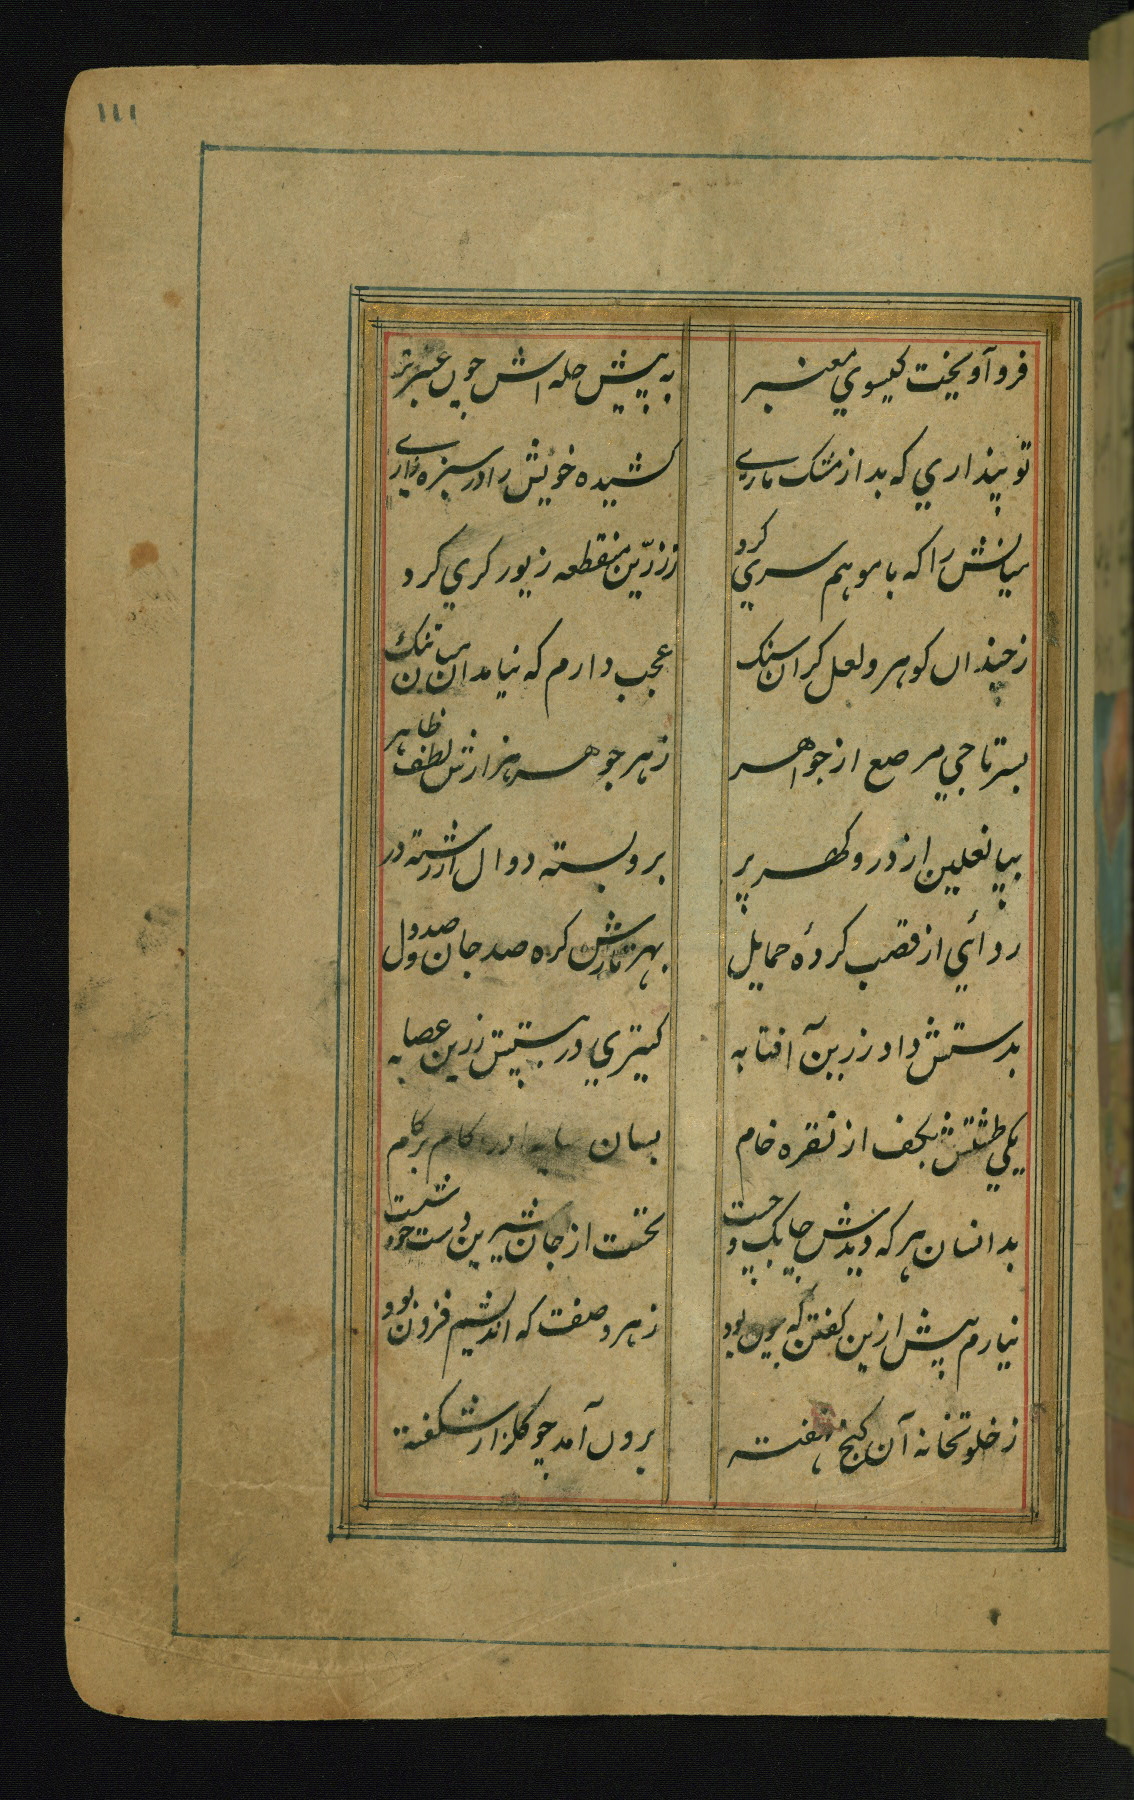 ١١١
فرو آویخت کیسوي معنبر به پیش حله اش چون عنبر تر
تو پنداري که بد از مشک مارے کشیده خویش را در سبزه زارے
میانش را که با مو هم سري کرد ز زرّین منقطعه زیور کري کرد
ز چندان کوهر و لعل کران سنک عجب دارم که نیامد ان میان تنک
بسر تاجي مرصع از جواهر ز هر جوهر هزارش لطف ظاهر
بپا نعلین از در و کهر پر برو بسته دوال از رشته در
ردائي از قصب کردۀ حمایل بهر تارش کره صد جان و صد دل
بدستش داد زرین آفتابه کنیزي در پستیش زرین عصابه
یکي طشتش بکف از نقره خام بسان سایه او را کام بر کام
بدانسان هر که دیدش چابک و چست نخست از جان شیرین دست خود شست
نیارم پیش ازین کفتن که چون بود ز هر وصفت که اندیشیم فزون بود
ز خلوتخانه آن کنج نهفته برون آمد چو کلزار شکفته